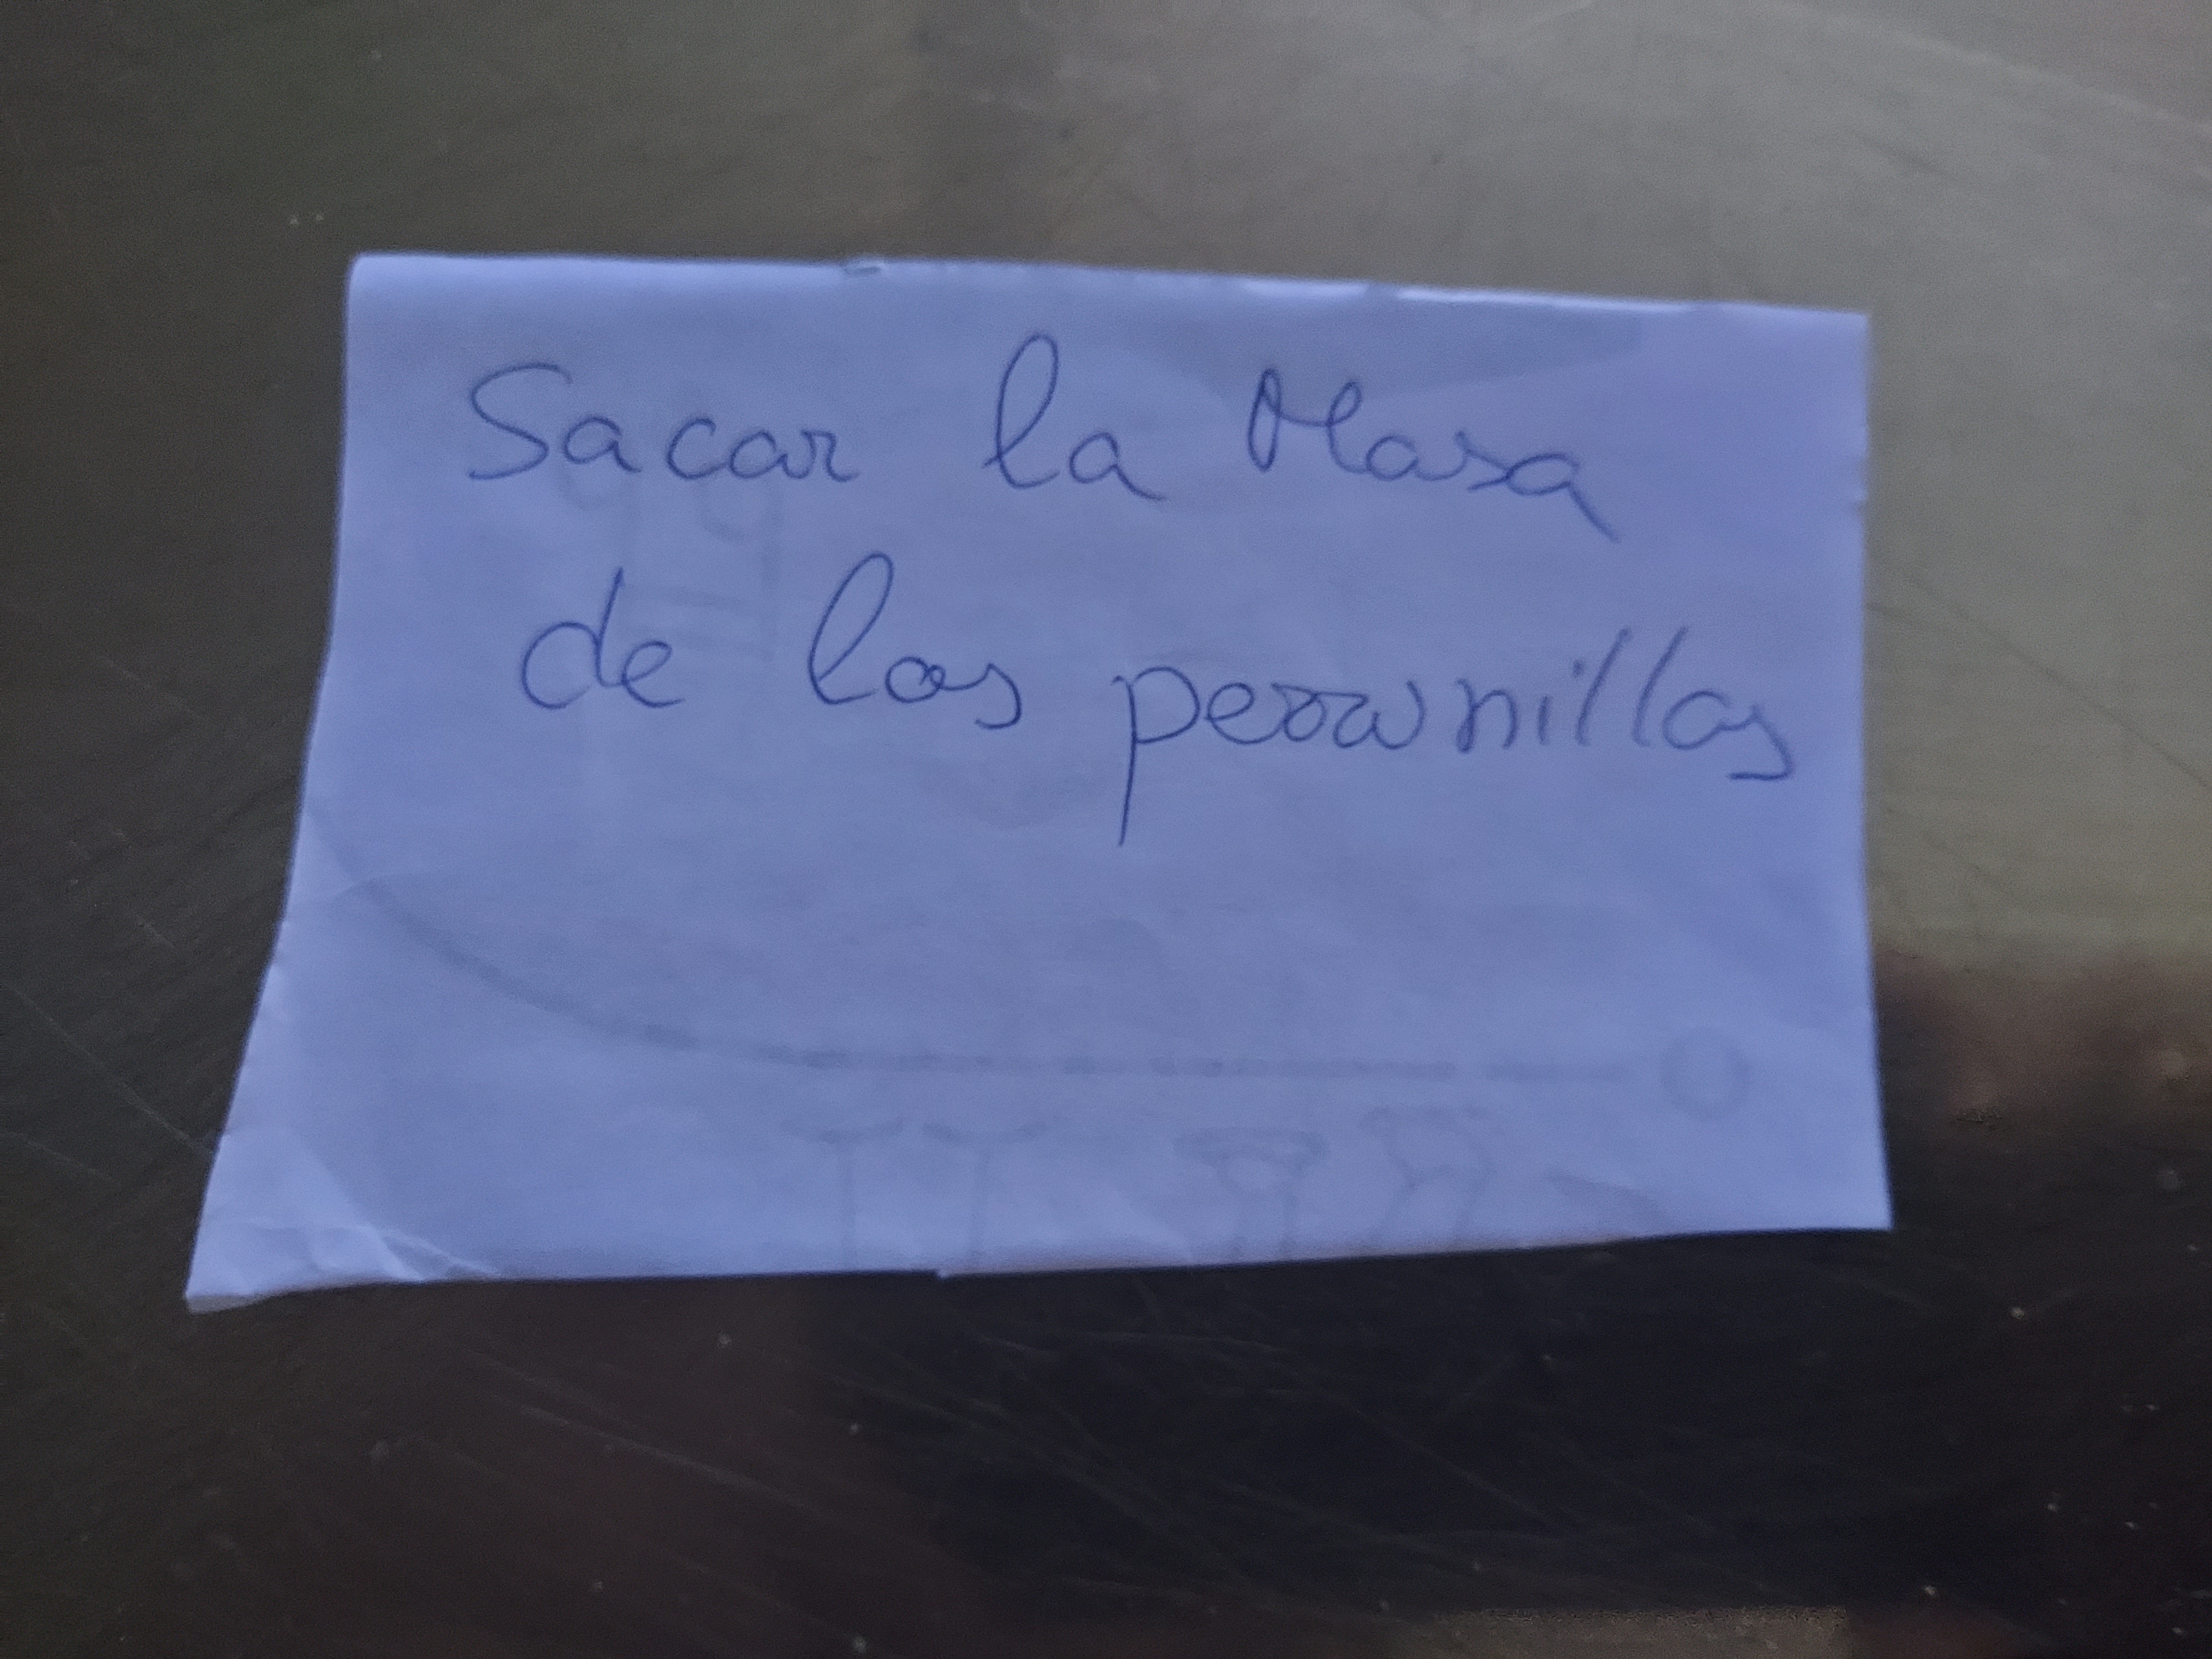 Sacar la Masa
de las perrunillas